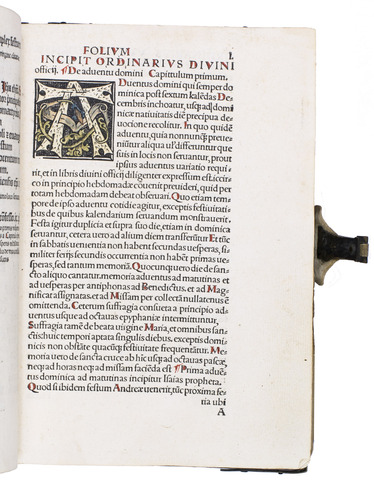 FOLIVM I.
INCIPIT ORDINARIVS DIVINI
officij. ¶De aduentu domini Capittulum primum.
ADuentus domini qui semper do
minica post sextum kalēdas De
cembris inchoatur, usq; ad domi
nicæ natiuitatis diē præcipua de
uocione recolitur. In quo quidē
aduentu, quia nonnunquā preue
niūtur aliqua ul' differuntur que
suis in locis non seruantur, prout
ipsius aduentus uariatio requi
rit, et in libris diuini officij diligenter expressum est: icc
co in principio hebdomadæ cōuenit preuideri, quid per
totam hebdomadam debeat obseruari. Quo etiam tem-
pore de ipso aduentu cotidie agitur, exceptis festiuitati
bus de quibus kalendarium seruandum monstrauerit.
Festa igitur duplicia et supra suo die, etiam in dominica
seruantur, cetera uero ad alium diem transferūtur Et tūc
in sabbatis uenientia non habent secundas uesperas, si-
militer ferijs secundis occurrentia non habēt primas ues
peras, sed tantum memoriā. Quocunque uero die de san-
cto aliquo cantatur, memoria aduentus ad matutinas et
ad uesperas per antiphonas ad Benedictus. et ad Mag
nificat assignatas, et ad Missam per collectā nullatenus ē
omittenda. Ceterum suffragia consueta a principio ad-
uentus usque ad octauas epyphaniæ intermittuntur,
Suffragia tamē de beata uirgine Maria, et omnibus san-
ctis huic tempori aptata singulis diebus, exceptis domi-
nicis non obstante quacūq; festiuitate frequentātur. Me
moria uero de sancta cruce ab hīc usq; ad octauas pascæ,
neq; ad horas neq; ad missam faciēda est ¶Prima aduē-
tus dominica ad matutinas incipitur Isaias propheta.
Quod si ibidem festum Andreæ uenerit, tūc proxima fe-
ria ubi
A